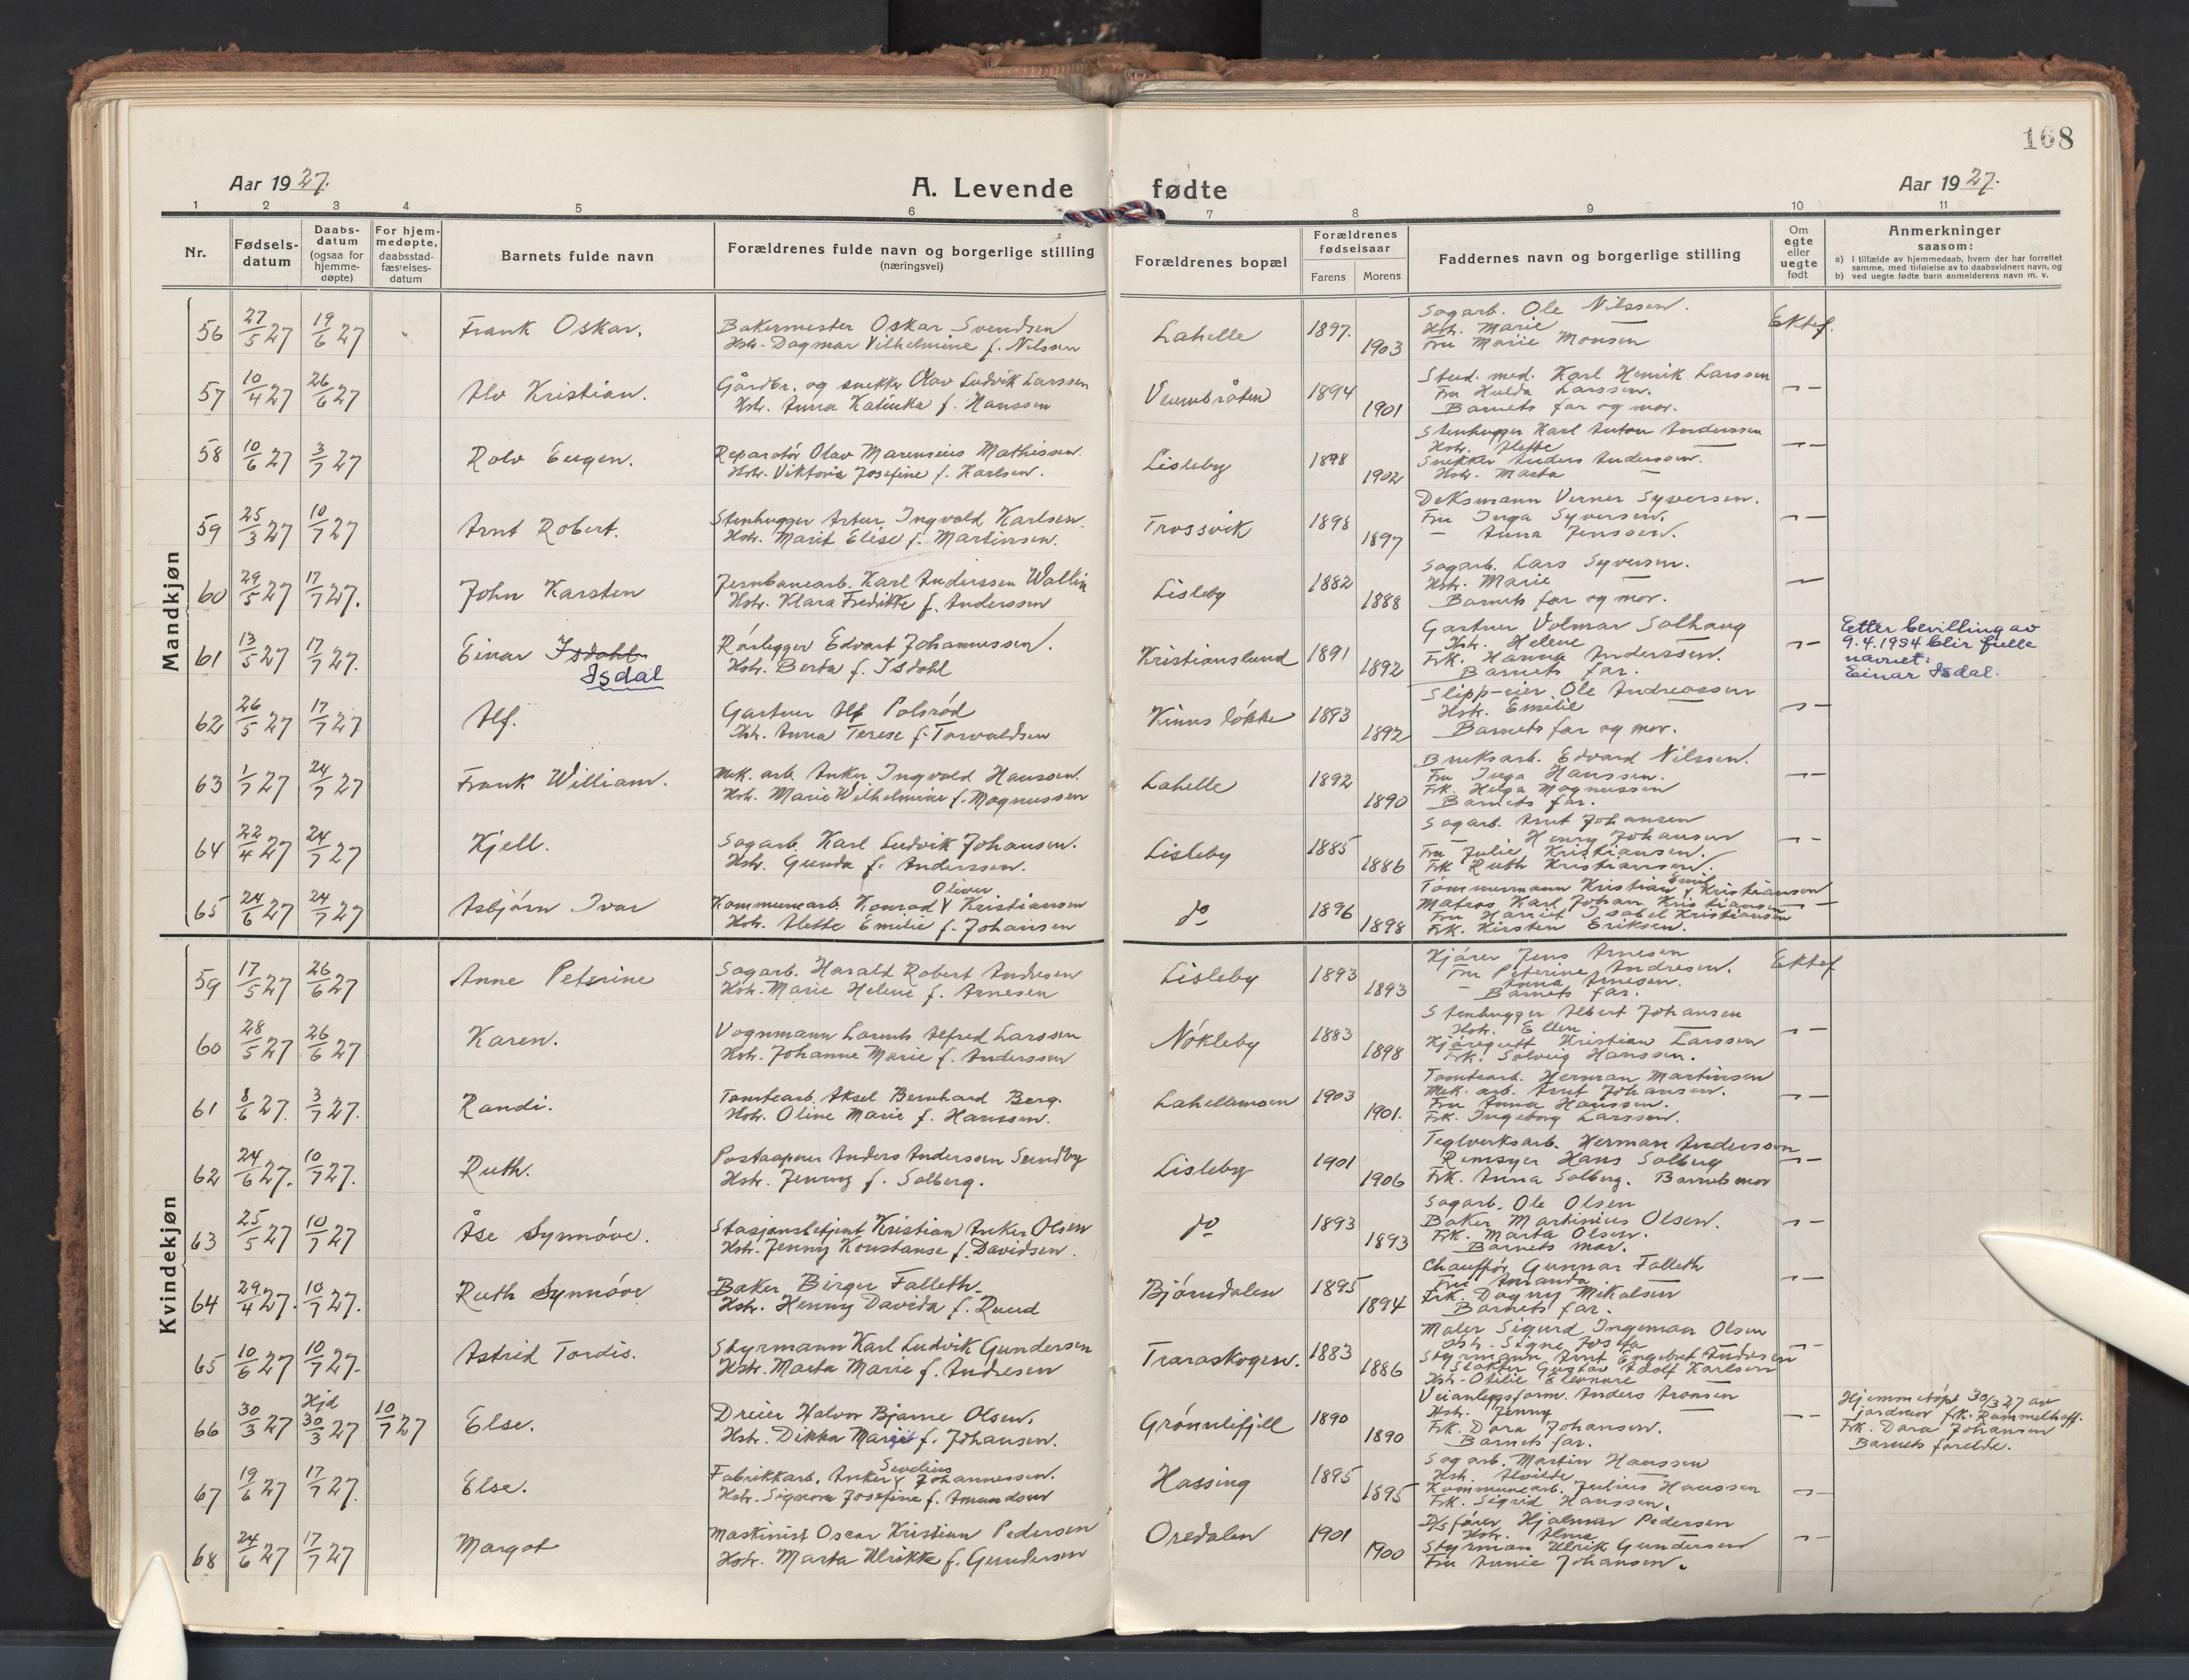 168
Aar 1927.
A. Levende fødte
Aar 1927.
1 2 3 4 5 6 7 8 9 10 11
Nr.
Fødsels-
datum
Daabs-
datum
(ogsaa for
hjemme-
døpte)
For hjem-
medøpte,
daabsstad-
fæstelses-
datum
Barnets fulde navn
Forældrenes fulde navn og borgerlige stilling
(næringsvei)
Forældrenes bopæl
Forældrenes
fødselsaar
Farens Morens
Faddernes navn og borgerlige stilling
Om
egte
eller
uegte
født
Anmerkninger
saasom:
a) i tilfælde av hjemmedaab, hvem der har forrettet
samme, med tilføielse av to daabsvidners navn, og
b) ved uegte fødte barn anmelderens navn m. v.
Mandkjøn
56 27/5 27 19/6 27 Frank Oskar. Bakermester Oskar Svendsen
Hstr. Dagmar Vilhelmine f. Nilssen
Lahelle 1897. 1903
Sagarb. Ole Nilssen.
Hstr. Marie —
Fru Marie Monsen
Ektef.
57 10/4 27 26/6 27 Alv Kristian. Gårdbr. og snekker Olav Ludvik Larssen
Hstr. Anna Katinka f. Hanssen
Veumbråten 1894 1901
Stud. med. Karl Henrik Larssen
Fru Hulda Larssen.
Barnets far og mor.
58 10/6 27 3/7 27 Rolv Eugen. Reparatör Olav Marensius Mathissen.
Hstr. Viktoria Josefine f. Karlsen.
Lisleby 1898 1902
Stenhugger Karl Anton Anderssen
Hstr. Alette —
Snekker Anders Anderssen.
Hstr. Marta —
59 25/3 27 10/7 27 Arnt Robert. Stenhugger Artur Ingvald Karlsen.
Hstr. Marit Elise f. Martinsen.
Trossvik 1898 1897
Deksmann Verner Syversen.
Fru Inga Syversen.
— Anna Jenssen.
60 29/5 27 17/7 27. John Karsten Jernbanearb. Karl Anderssen Wallin
Hstr. Klara Fredrikke f. Anderssen
Lisleby 1882 1888
Sagarb. Lars Syversen.
Hstr. Marie —
Barnets far og mor.
61 13/5 27 17/7 27. Einar Isdahl
Isdal
Rørlegger Edvart Johannessen.
Hstr. Berta f. Isdahl
Kristianslund 1891 1892
Gartner Volmar Solhaug
Hstr. Helene —
Frk. Hanna Anderssen.
Barnets far.
Etter bevilling av
9.4.1954 blir fulle
navnet:
Einar Isdal.
62 26/5 27 17/7 27 Alf. Gartner Alf Polsröd
Hstr. Anna Terese f. Torvaldsen
Kinns løkke 1893 1892
Slipp-eier Ole Andreassen
Hstr. Emilie —
Barnets far og mor.
63 1/7 27 24/7 27 Frank William. Mek. arb. Anker Ingvald Hanssen.
Hstr. Marie Wilhelmine f. Magnussen
Lahelle 1892 1890
Bruksarb. Edvard Nilssen.
Fru Inga Hanssen.
Frk. Helga Magnussen
Barnets far.
64 22/4 27 24/7 27 Kjell. Sagarb. Karl Ludvik Johansen.
Hstr. Gunda f. Anderssen.
Lisleby 1885 1886
Sagarb. Arnt Johansen
— Henry Johansen
Fru Julie Kristiansen.
Frk Ruth Kristiansen.
65 24/6 27 24/7 27 Asbjørn Ivar Oliver
Kommunearb. Konrad V Kristiansen
Hstr. Alette Emilie f. Johansen
do 1896 1898
Tømmermann Kristian Emil Kristiansen
Matros Karl Johan Kristiansen
Fru Harriet Isabel Kristiansen
Frk. Kirsten Eriksen.
Kvindekjøn
59 17/5 27 26/6 27 Anne Peterine Sagarb. Harald Robert Andresen
Hstr. Marie Helene f. Arnesen
Lisleby 1893 1893
Kjører Jens Arnesen
Fru Peterine Andresen.
— Anna Arnesen.
Barnets far.
Ektef
60 28/5 27 26/6 27 Karen. Vognmann Laurits Alfred Larssen
Hstr. Johanne Marie f. Anderssen
Nökleby 1883 1898
Stenhugger Albert Johansen
Hstr. Ellen —
Kjöregutt Kristian Larssen
Frk. Solveig Hanssen.
61 8/6 27. 3/7 27. Randi. Tomtearb. Aksel Bernhard Berg.
Hstr. Oline Marie f. Hanssen.
Lahellemoen 1903 1901.
Tomtearb. Herman Martinsen
Mek. arb. Arnt Johansen.
Fru Anna Hanssen.
Frk. Ingeborg Larssen.
62 24/6 27. 10/7 27. Ruth. Postaapner Anders Anderssen Sundby
Hstr. Jenny f. Solberg.
Lisleby 1901 1906
Teglverksarb. Herman Anderssen
Remsyer Hans Solberg
Frk. Anna Solberg. Barnets mor
63 25/5 27 10/7 27 Åse Synnöve. Stasjonsbetjent Kristian Anker Olsen
Hstr. Jenny Konstanse f. Davidsen.
do 1893 1893
Sagarb. Ole Olsen
Baker Martinius Olsen.
Frk. Marta Olsen.
Barnets mor.
64 29/4 27. 10/7 27. Ruth Synnöve Baker Birger Falleth.
Hstr. Henny Davida f. Ruud
Björndalen 1895 1894
Chauffør Gunnar Falleth
Fru Amanda —
Frk. Dagny Mikalsen
Barnets far.
65 10/6 27 10/7 27. Astrid Tordis. Styrmann Karl Ludvik Gundersen
Hstr. Marta Marie f. Andresen
Traraskogen. 1883 1886
Maler Sigurd Ingeman Olsen
Hstr. Signe Josefa
Styrmann Arnt Engebret Andresen
Slakter Gustav Adolf Karlsen
Hstr. Otilie Eleonore
66 30/3 27 Hjd 30/3 27 10/7 27 Else. Dreier Halvor Bjarne Olsen.
Hstr. Dikka Margit f. Johansen.
Grönnlifjell 1890 1890
Veianleggsform. Anders Aronsen
Hstr. Jenny —
Frk. Dora Johansen.
Barnets far.
Hjemmedøpt 30/3 27 av
jordmor frk. Rommelhoff.
Frk. Dora Johansen
Barnets forelde.
67 19/6 27 17/7 27. Else. Sevelius
Fabrikkarb. Anker V Johannessen.
Hstr. Signora Josefine f. Amundsen
Hassing 1895 1895
Sagarb. Martin Hanssen
Hstr. Alvilde —
Kommunearb. Julius Hanssen
Frk. Sigrid Hanssen.
68 24/6 27 17/7 27 Margot Maskinist Oscar Kristian Pedersen
Hstr. Marta Ulrikke f. Gundersen
Oredalen 1901 1900
D/s fører Hjalmar Pedersen
Hstr. Alma —
Styrman Ulrik Gundersen
Fru Annie Johansen.